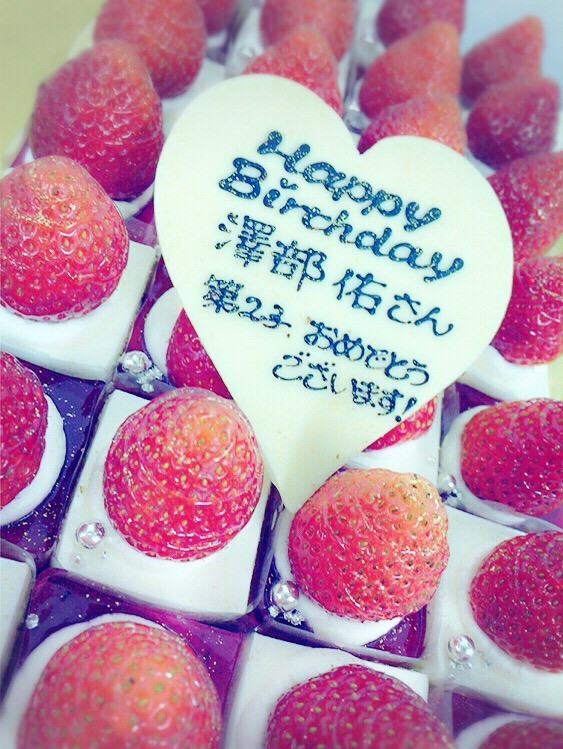 Happy
Birthday
澤部 佑さん
第2子 おめでとう
ございます!